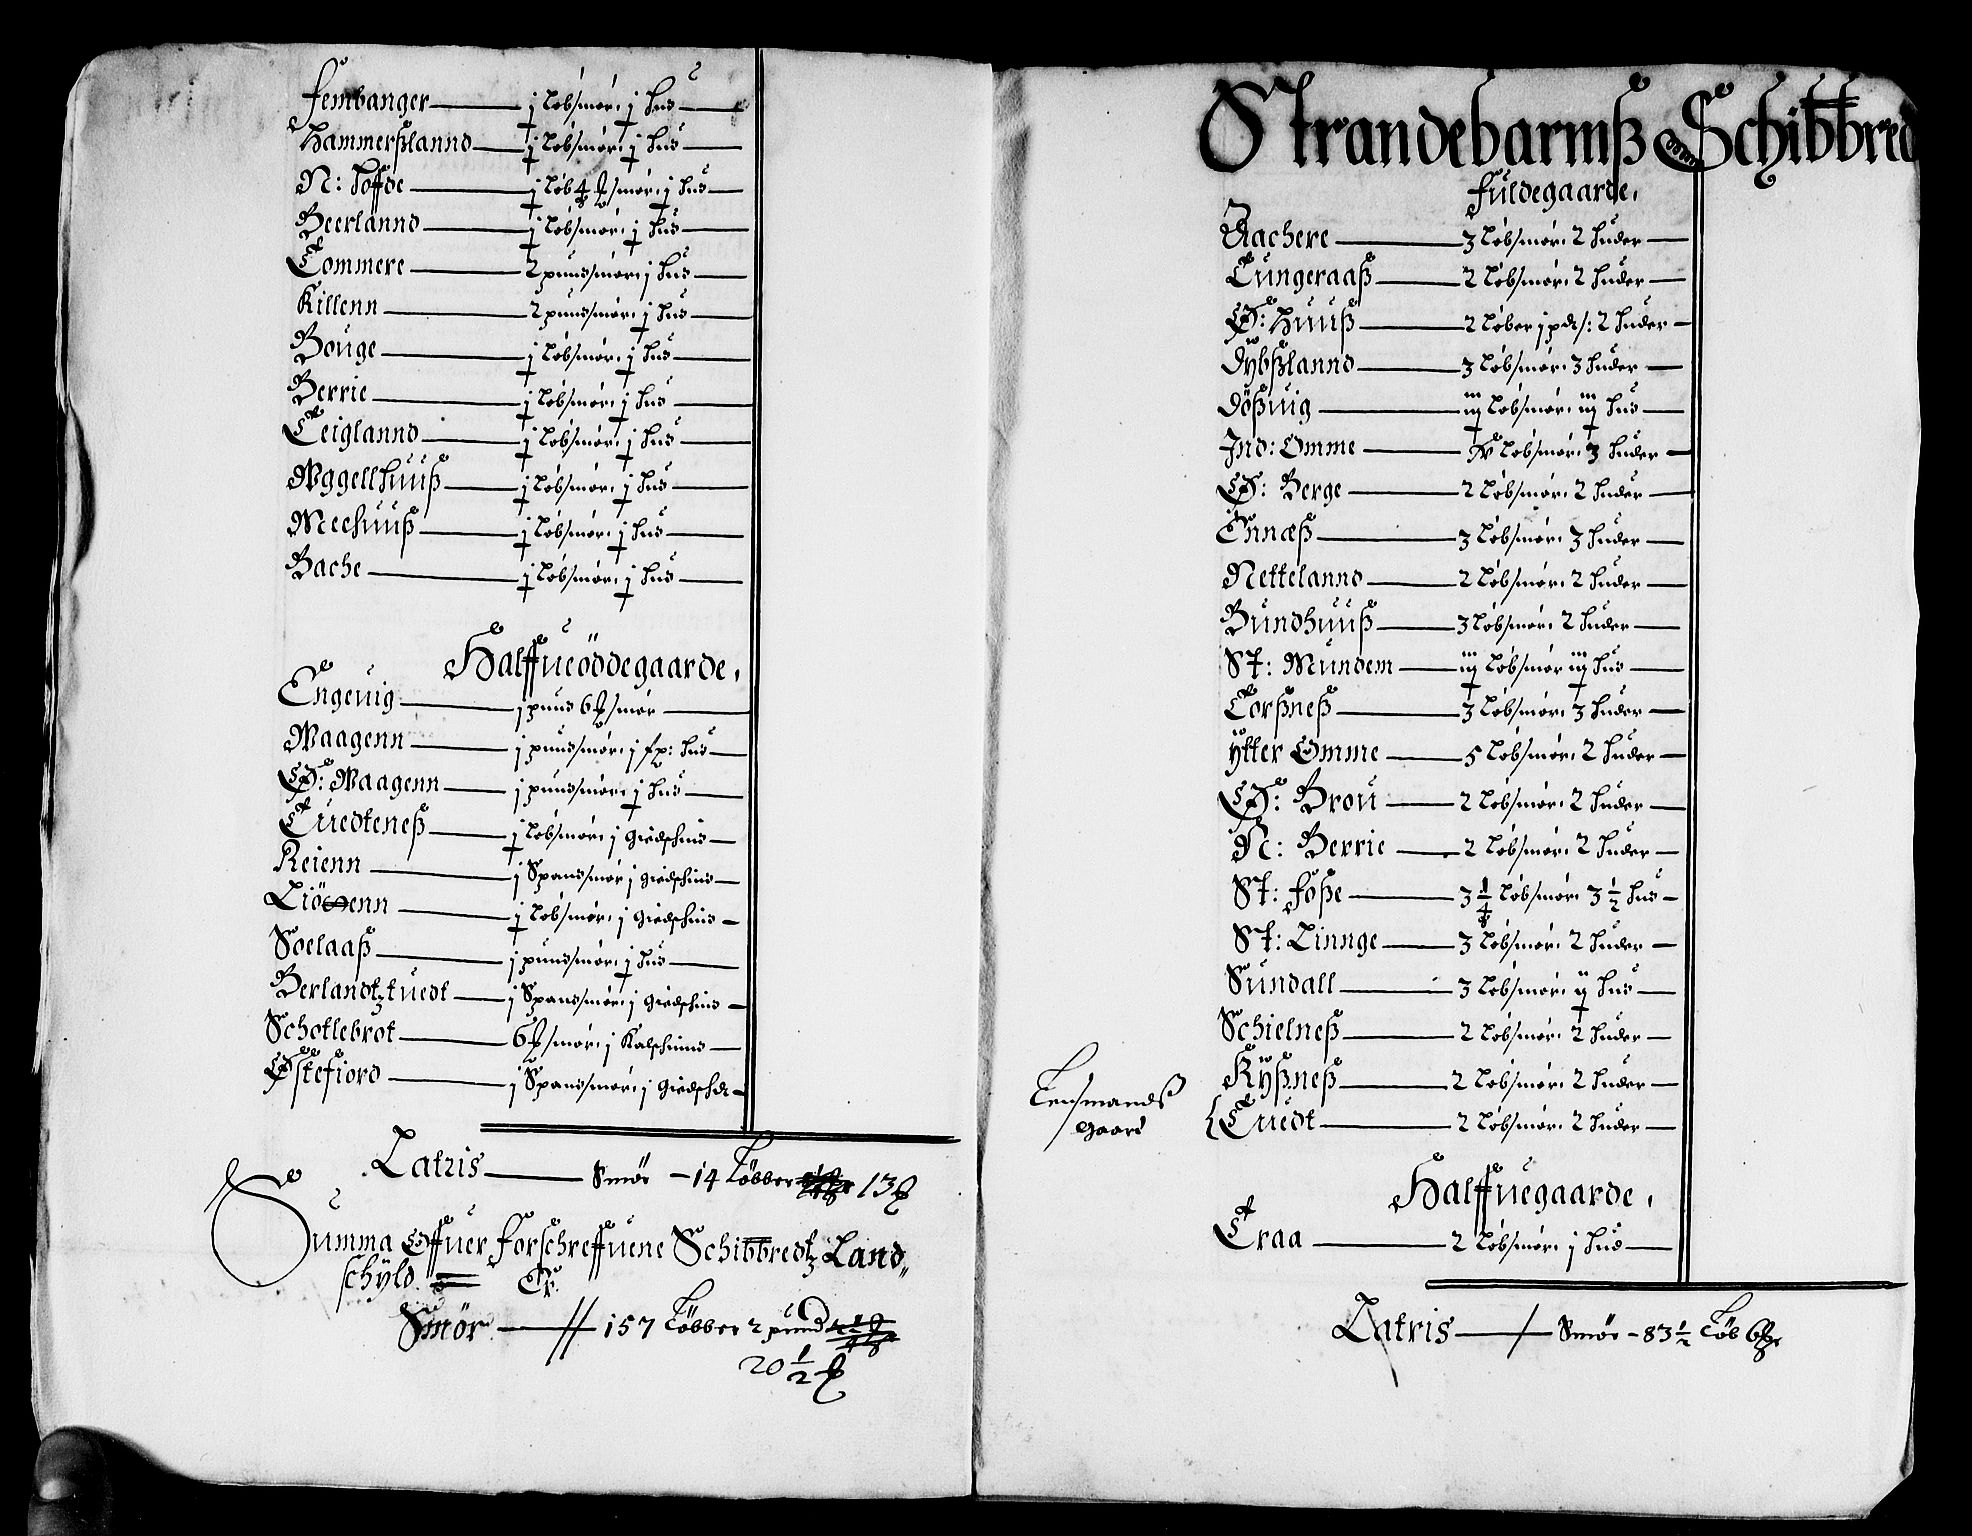 Fembanger — j Løbsmør, j hud —
Hammerßlannd — j Løbsmør, j hud —
N: Toffde — j Løb 4 ℔ smør, j hud —
Beerlannd — j Løbsmør, j hud —
Tommere — 2 pundsmør, j hud —
Killenn — 2 pundsmør, j hud —
Bouge — j Løbsmør, j hud —
Berrie — j Løbsmør, j hud —
Teiglannd — j Løbsmør, j hud —
Wggellhuuß — j Løbsmør, j hud —
Meehuuß — j Løbsmør, j hud —
Bache — j Løbsmør, j hud —
Halffueøddegaarde,
Engeuig — j pund 6 ℔ smør —
Waagenn — j pundsmør, j fp: hud —
Ø: Waagenn — j pundsmør, j hud —
Tuedteneß — j Løbsmør, j giedschind —
Reienn — j Spandsmør j giedschind —
Liöenn — j Løbsmør, j giedschind —
Soelaaß — j pundsmør, j hud —
Berlandtztuedt — j Spandsmør, j giedschind —
Schotlebrot — 6 ℔ smør, j Kalschind —
Østefiord — j Spandsmør, j giedschd —
Latris — Smör – 14 Løbber 13 ℔
Summa Offuer Forschreffuene Schibbredtz Land„
schÿld. Er
Smör — // 157 Løbber 2 pund
20 1/2 ℔
Strandebarmß Schibbred
Fuldegaarde,
Aachere — 3 Løbsmør, 2 huder —
Tungeraaß — 2 Løbsmør, 2 huder —
Ø: Huuß — 2 Løber j pd s: 2 huder —
Dybßlannd — 3 Løbsmør, 3 huder —
Dößuig — iij Løbsmør, iij hud —
Ind: Omme — iv Løbsmør, 3 huder —
Ø: Berge — 2 Løbsmør, 2 huder —
Ennæß — 3 Løbsmør, 3 huder —
Nettelannd — 2 Løbsmør, 2 huder —
Bundhuuß — 3 Løbsmør, 2 huder —
St: Mundem — iij Løbsmør iij hud —
Torßneß — 3 Løbsmør, 3 huder —
ÿtter Omme — 5 Løbsmør, 2 huder —
Ø: Brou — 2 Løbsmør, 2 huder —
N: Berrie — 2 Løbsmør, 2 huder —
St: Foße — 3 1/4 Løbsmør, 3 1/2 hud —
St: Linnge — 3 Løbsmør, 2 huder —
Sundall — 3 Løbsmør, ij hud —
Schielneß — 2 Løbsmør, 2 huder —
Kÿßneß — 2 Løbsmør, 2 huder —
Lensmandß
gaard
Tuedt — 2 Løbsmør, 2 huder —
Halffuegaarde,
Traa — 2 Løbsmør, j hud —
Latris — Smör – 83 1/2 Løb 6 ℔